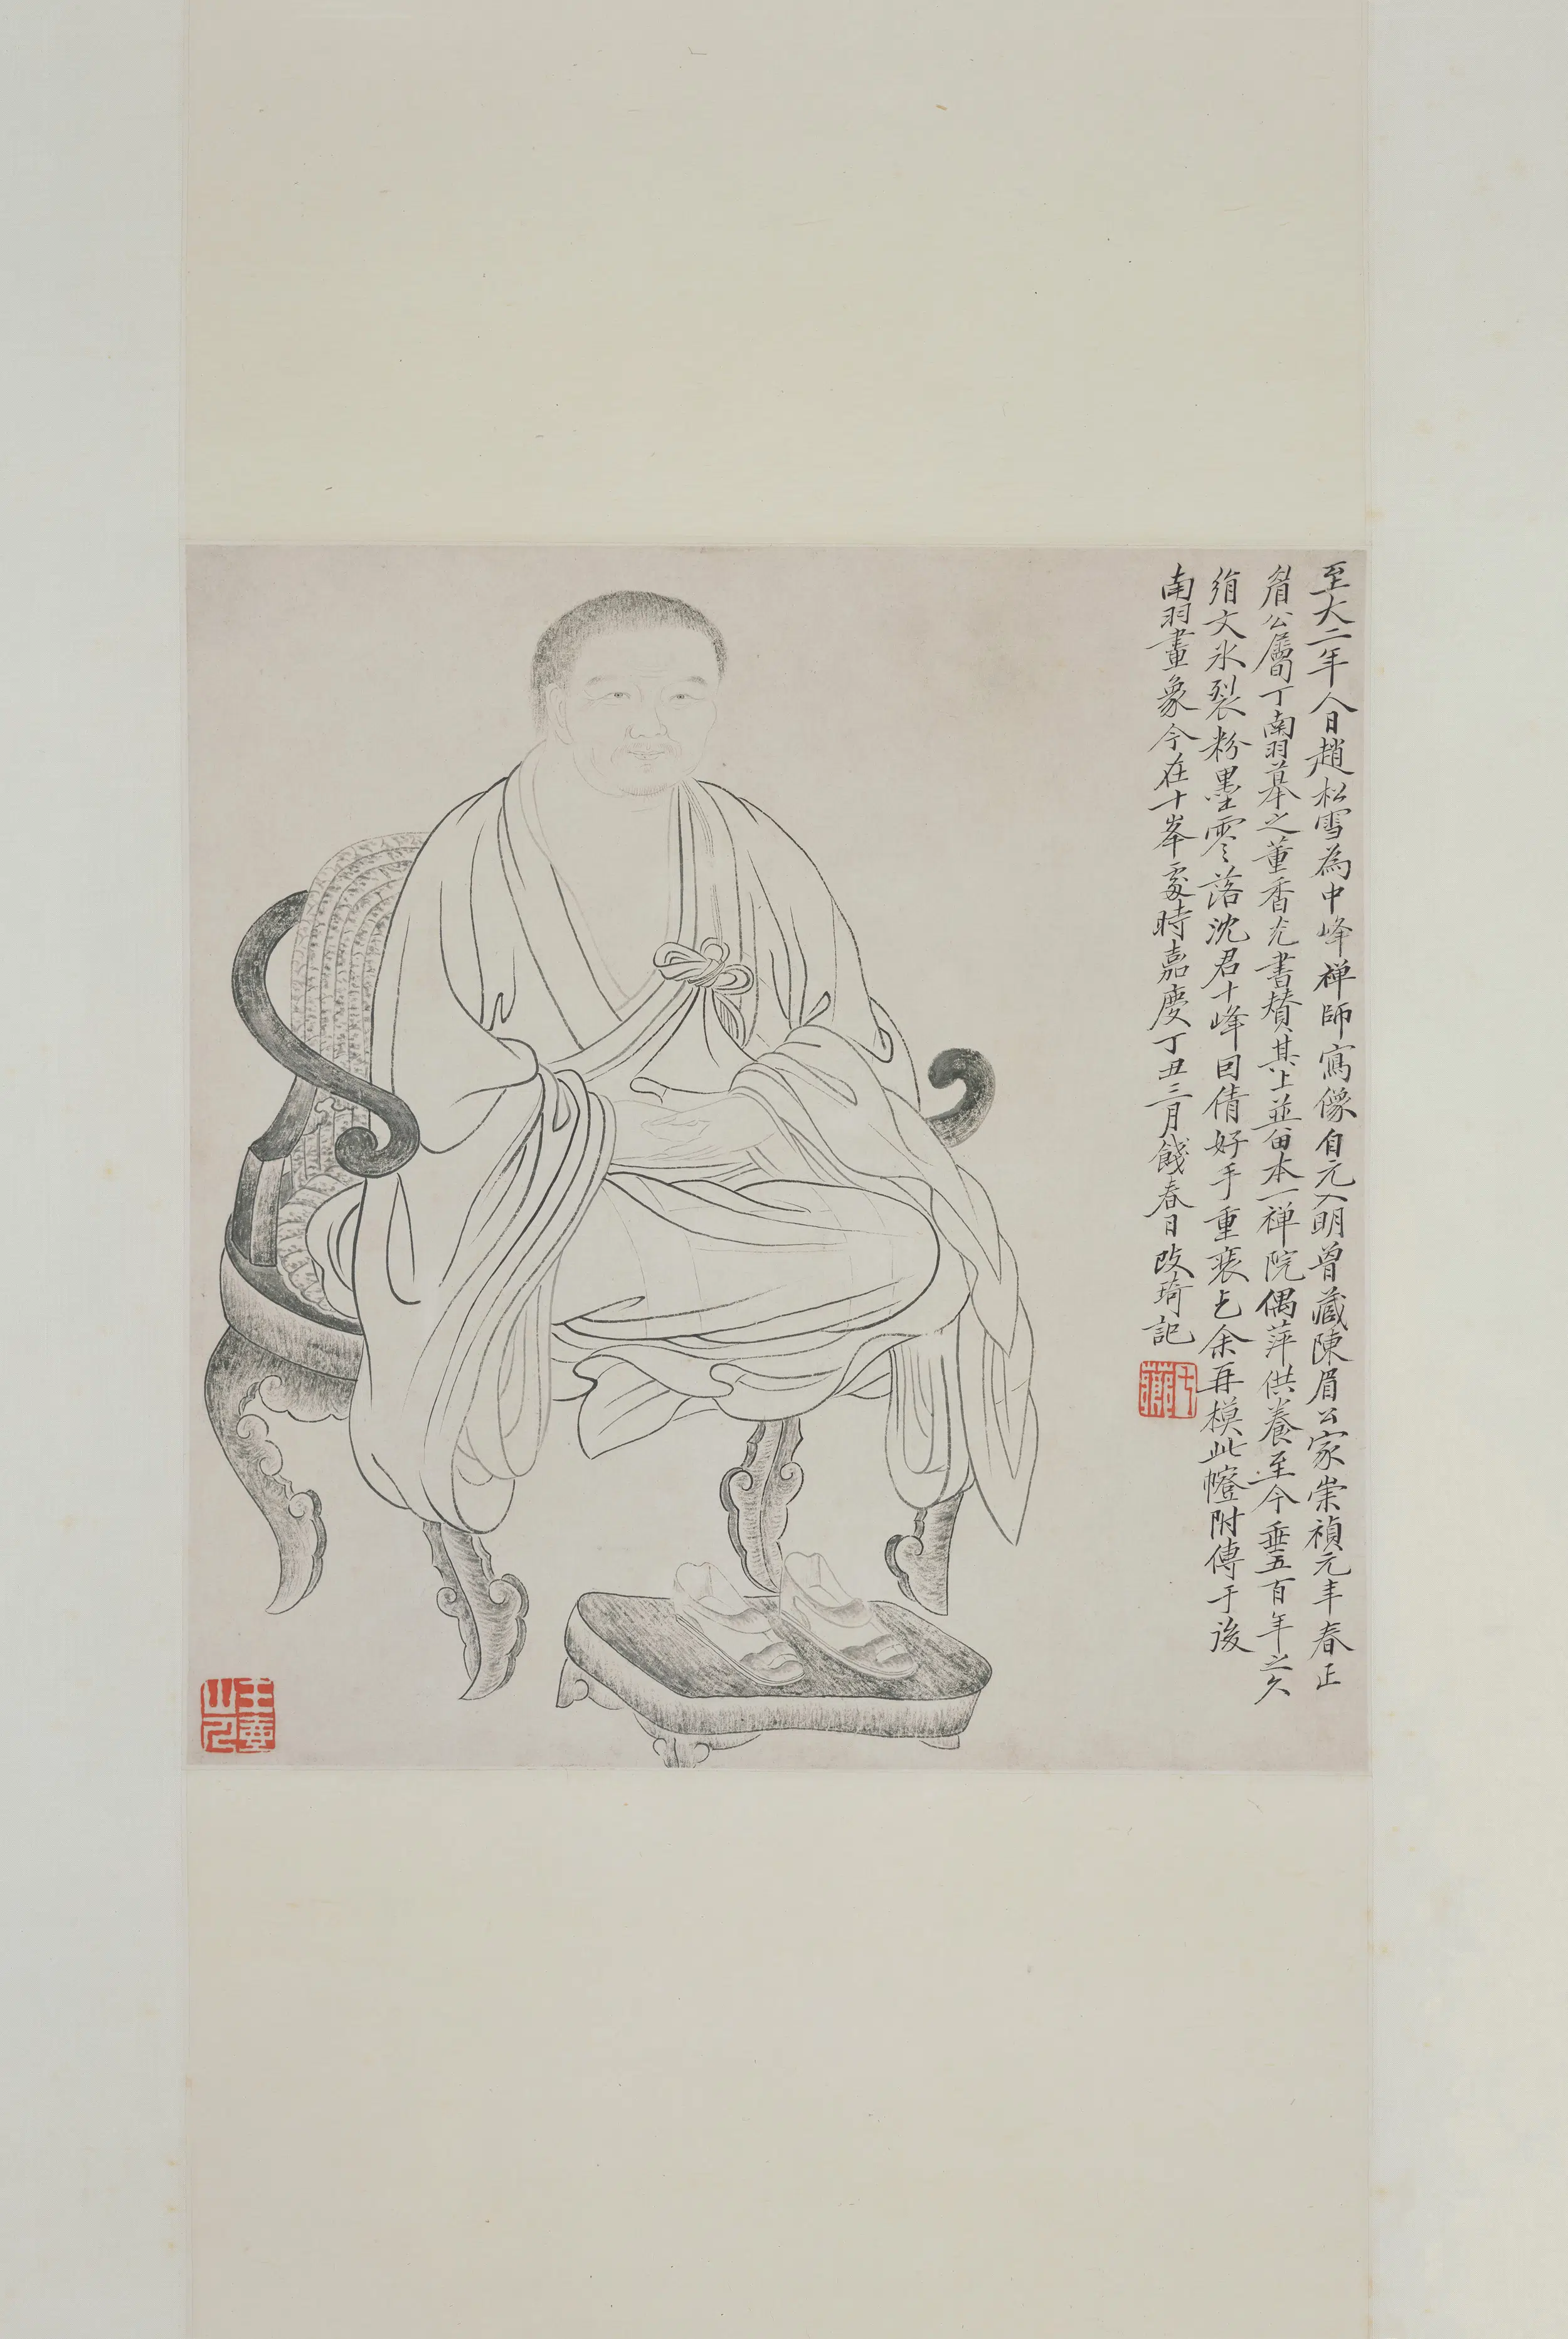 至大二年人日趙松雪為中峰禅師寫像自元入明曾藏陳眉公家崇禎元年春正
眉公屬丁南羽摹之董香光書賛其上並畱本一禅院偶萍供養至今垂五百年之久
絹文氷裂粉墨零落沈君十峰回倩好手重裝乞余再模此幀附傳于後
南羽畫象今在十峯處時嘉慶丁丑三月餞春日改琦記